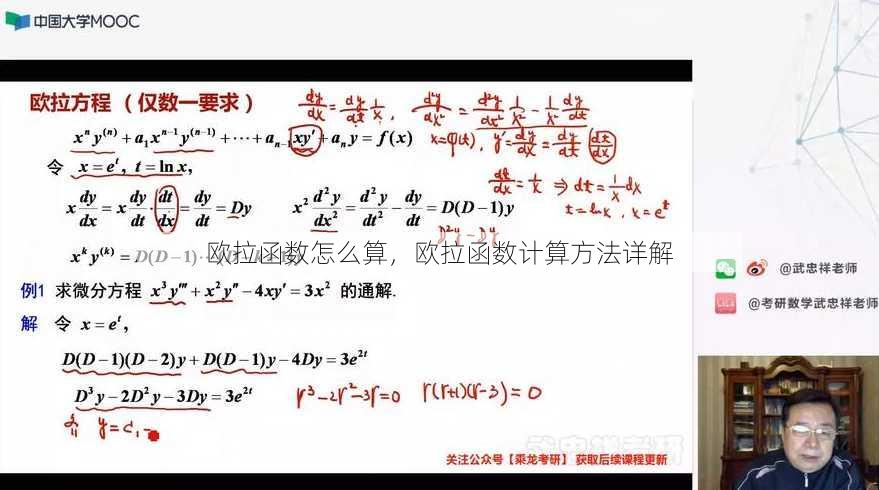 中国大学MOOC
欧拉方程（仅数一要求）
dy/dx = dy/dt 1/x , d²y/dx² = d²y/dt² 1/x² - 1/x² dy/dt
xⁿy⁽ⁿ⁾ + a₁xⁿ⁻¹y⁽ⁿ⁻¹⁾ + ⋯ + aₙ₋₁xy′ + aₙy = f(x)
x=φ(t), y′ = dy/dx = dy/dt dt/dx
令 x = eᵗ, t = ln x,
dt/dx = 1/x ⇒ dt = 1/x dx
t = ln x, x = eᵗ
x dy/dx = x dy/dt · dt/dx = dy/dt = Dy
x² d²y/dx² = d²y/dt² - dy/dt = D(D-1)y
D²y - Dy
xᵏy⁽ᵏ⁾ = D(D-1)
欧拉函数怎么算，欧拉函数计算方法详解
例1 求微分方程 x³y‴ + x²y″ - 4xy′ = 3x² 的通解.
解 令 x = eᵗ,
D(D-1)(D-2)y + D(D-1)y - 4Dy = 3e²ᵗ
D³y - 2D²y - 3Dy = 3e²ᵗ
r³-2r²-3r=0 r(r+1)(r-3)=0
y=c₁
关注公众号【乘龙考研】 获取后续课程更新
@武忠祥老师
@考研数学武忠祥老师